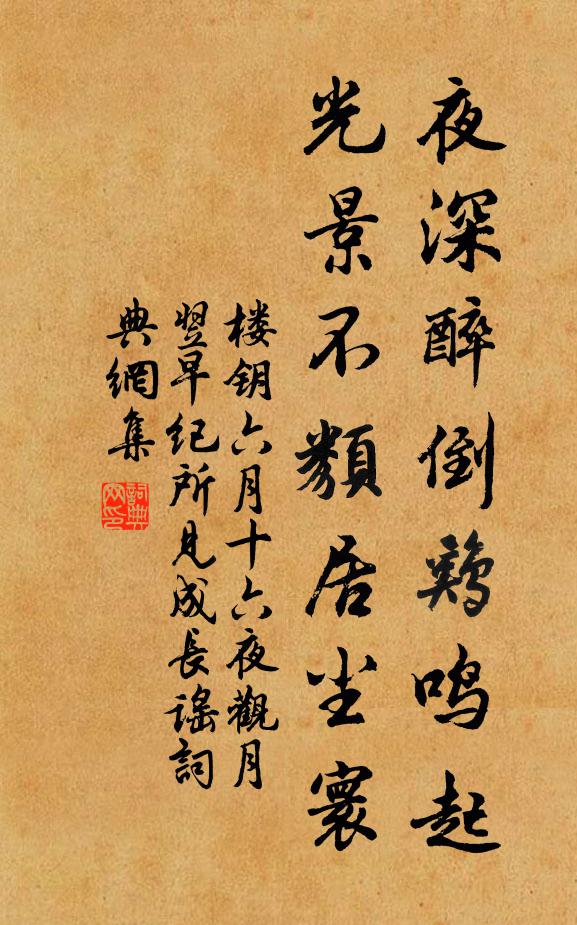 夜深醉倒鷄鳴起
光景不類居尘寰
楼钥六月十六夜觀月
翌早纪所见成長谣詞
典網集
詞典
网印